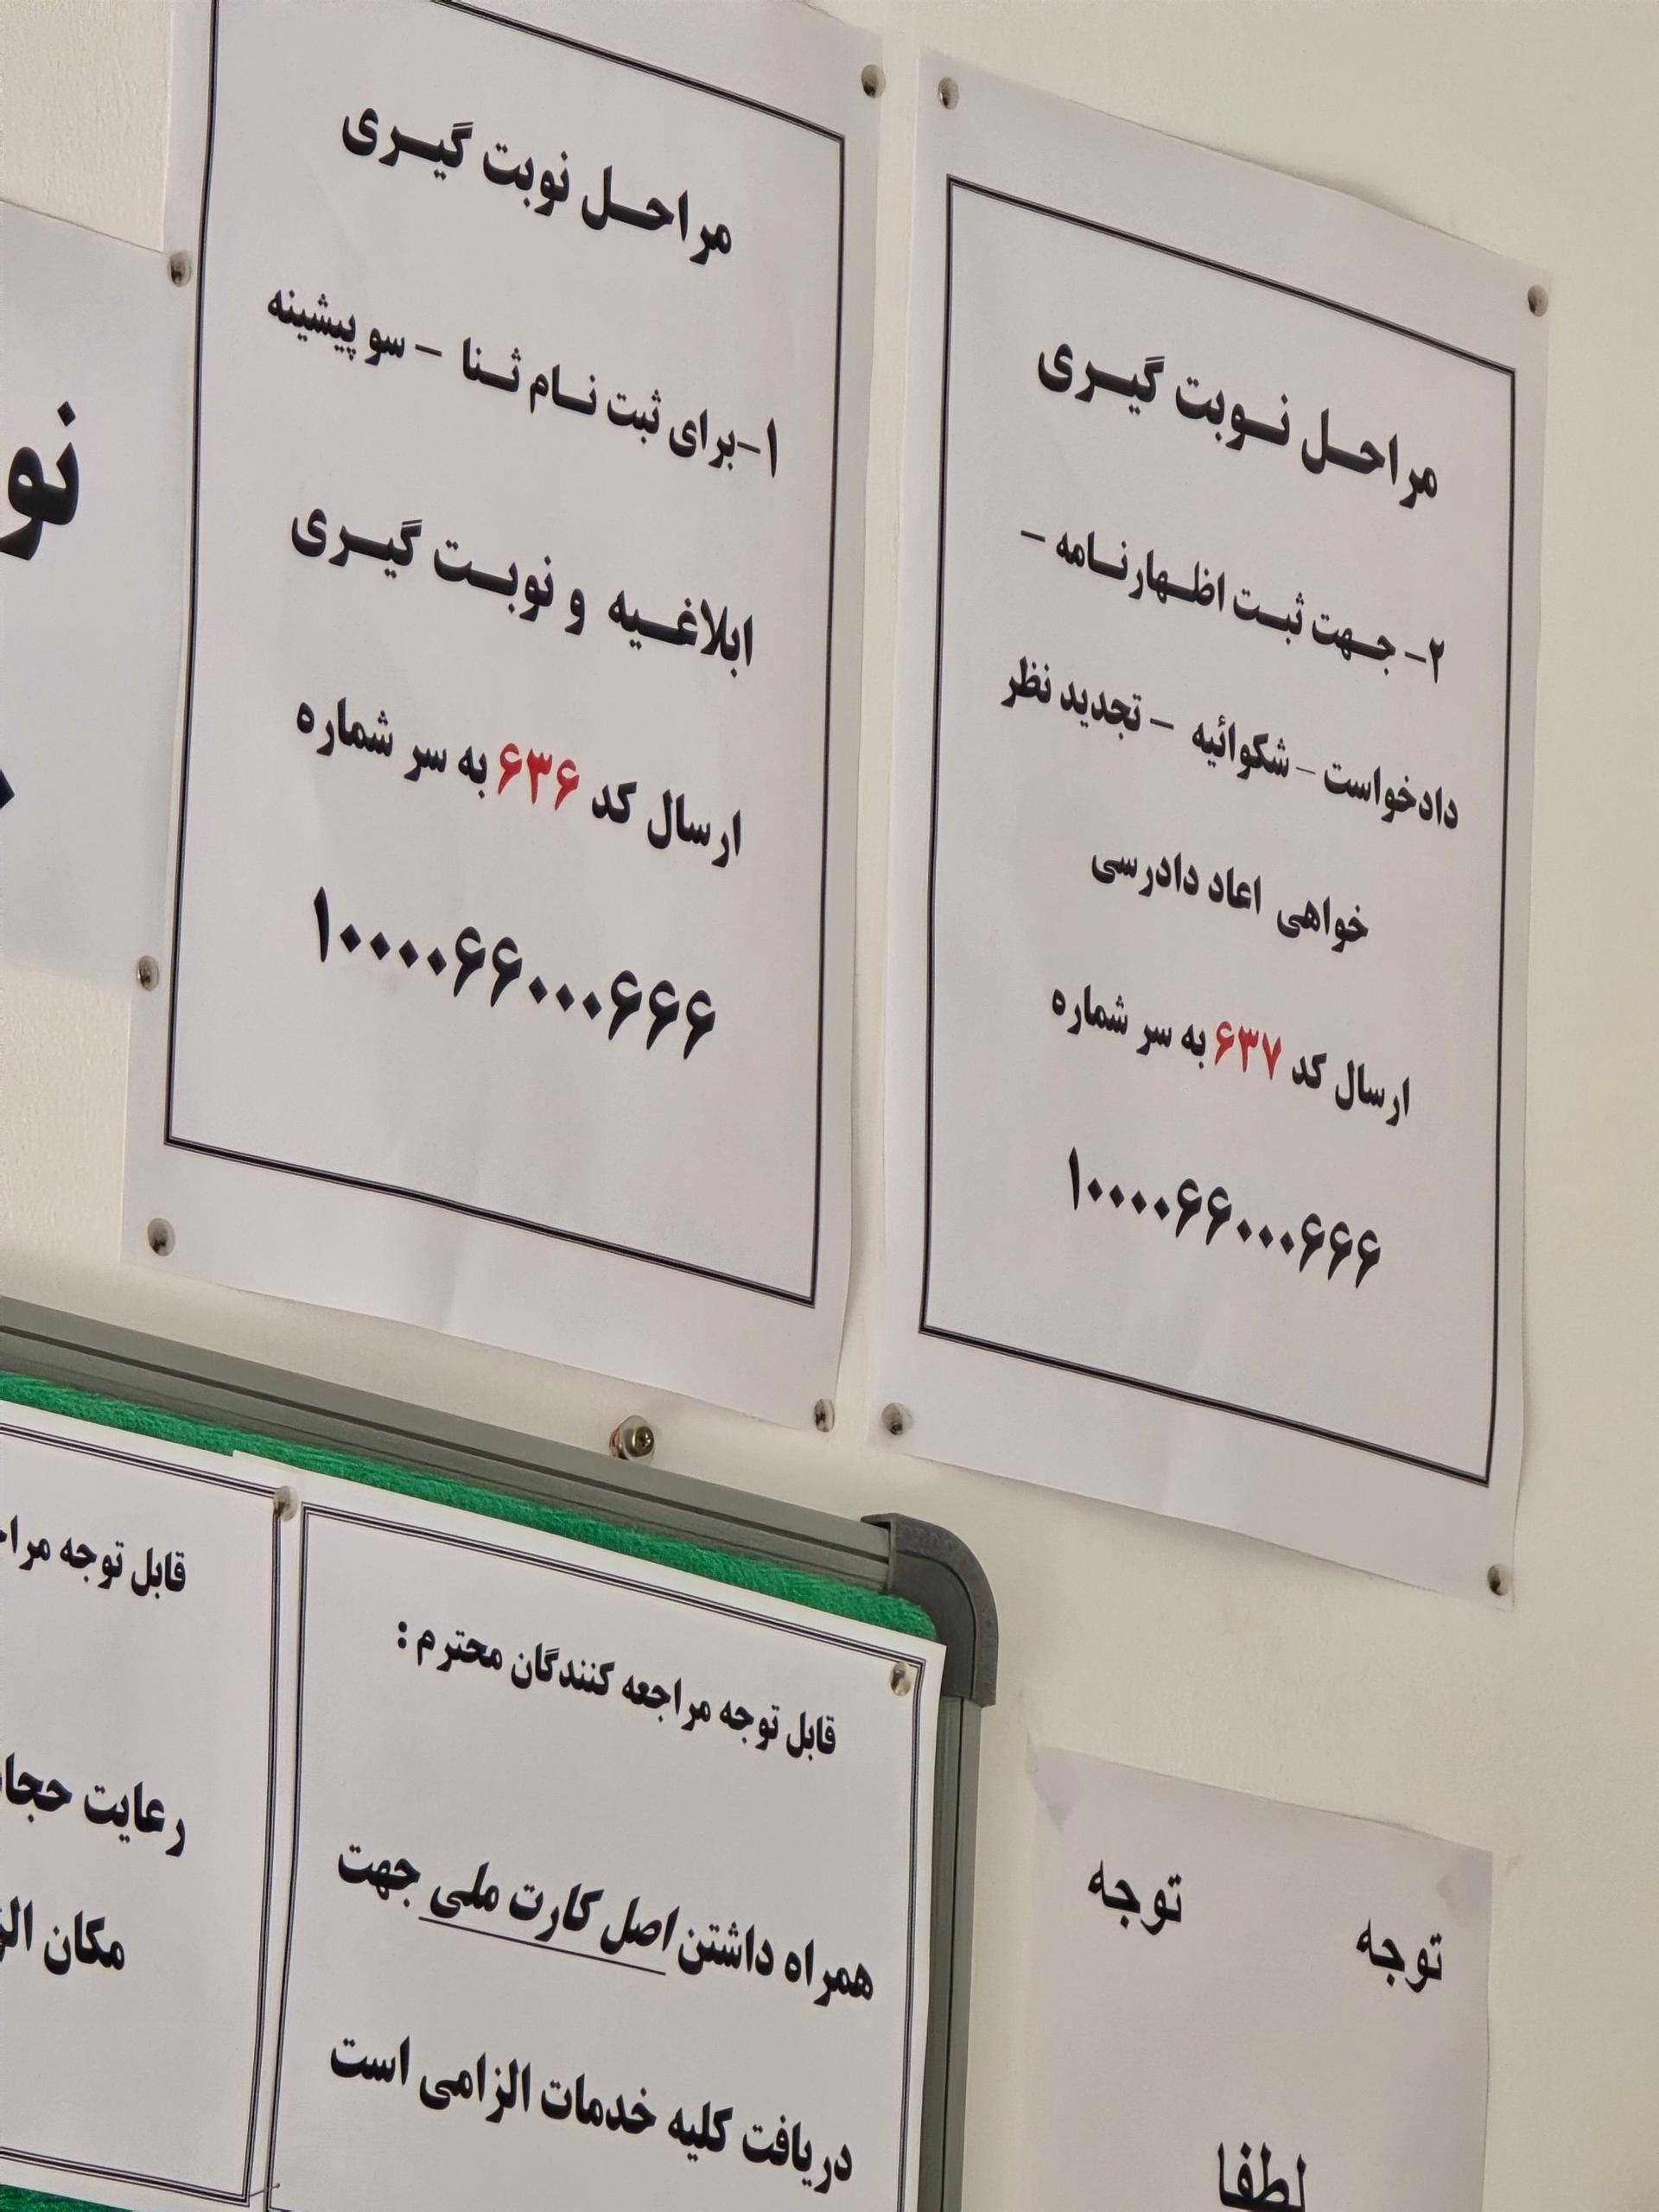 مراحل نوبت گیری
۱-برای ثبت نام ثنا – سو پیشینه
ابلاغیه و نوبت گیری
ارسال کد ۶۳۶ به سر شماره
۱۰۰۰۰۶۶۰۰۰۶۶۶
مراحل نوبت گیری
۲- جهت ثبت اظهارنامه –
دادخواست – شکوائیه – تجدید نظر
خواهی اعاد دادرسی
ارسال کد ۶۳۷ به سر شماره
۱۰۰۰۰۶۶۰۰۰۶۶۶
قابل توجه مراجعه کنندگان محترم :
همراه داشتن اصل کارت ملی جهت
دریافت کلیه خدمات الزامی است
قابل توجه
رعایت
مکان
توجه توجه
لطفا